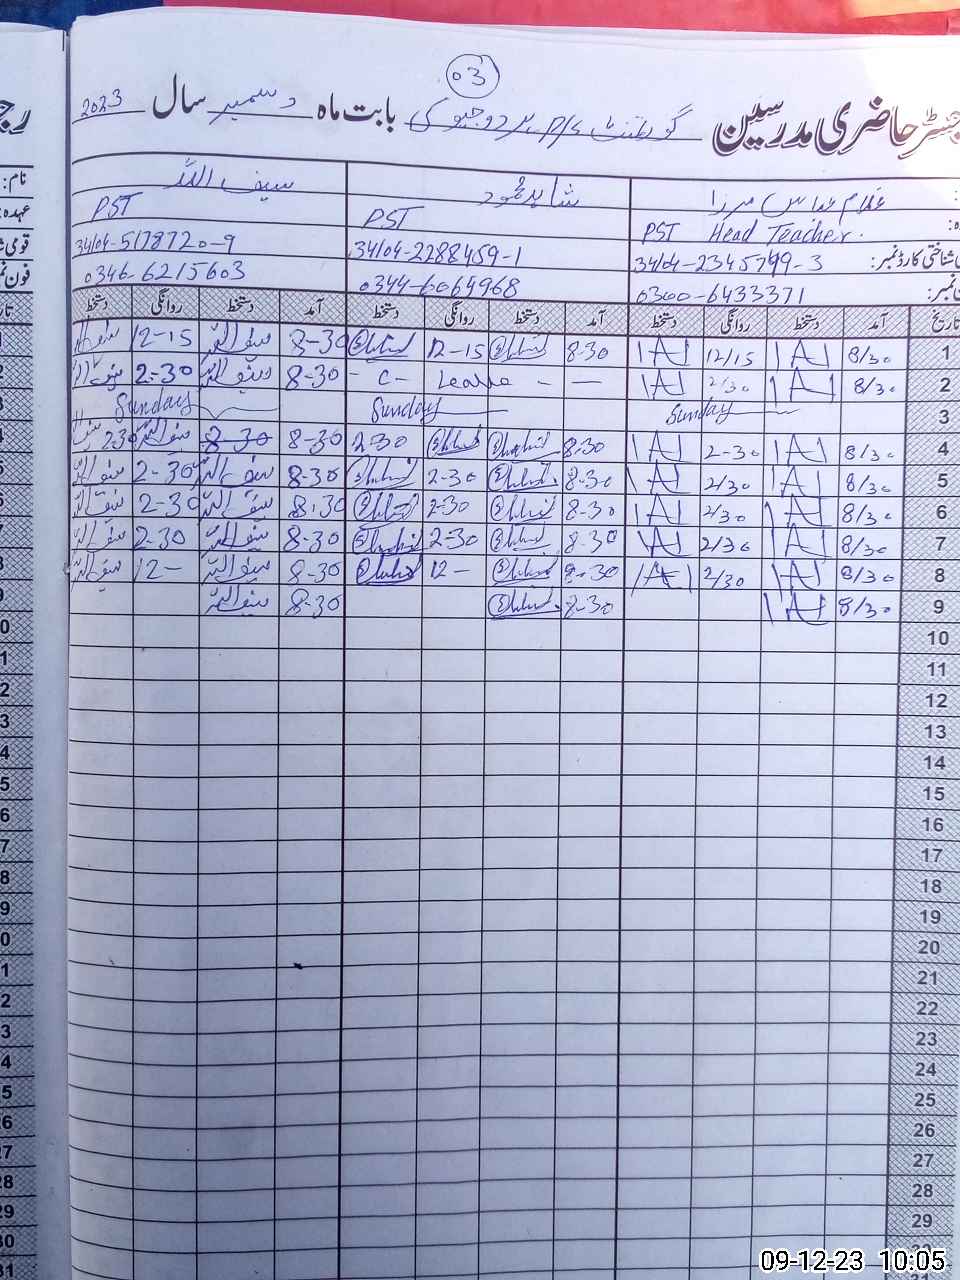 03
رجسٹر حاضری مدرسین گورنمنٹ P/S بابت ماہ دسمبر سال 2023
غلام عباس مرزا شاہد محمود سیف اللہ
PST Head Teacher. PST PST
شناختی کارڈ نمبر: 34104-2345799-3 34104-2288459-1 34104-5178720-9
0300-6433371 0344-6064968 0346-6215603
تاریخ آمد دستخط روانگی دستخط آمد دستخط روانگی دستخط آمد دستخط روانگی دستخط
1 8/30 12/15 8-30 12-15 8-30 سیف اللہ 12-15
2 8/30 2/30 — - Leave - C - 8-30 سیف اللہ 2-30
3 Sunday Sunday Sunday
4 8/30 2-30 8-30 2-30 8-30 8-30 سیف اللہ 2-30
5 8/30 2/30 8-30 2-30 8-30 سیف اللہ 2-30 سیف اللہ
6 8/30 2/30 8-30 2-30 8-30 سیف اللہ 2-30 سیف اللہ
7 8/30 2/30 8-30 2-30 8-30 سیف اللہ 2-30 سیف اللہ
8 8/30 2/30 8-30 12- 8-30 سیف اللہ 12- سیف اللہ
9 8/30 8-30 8-30 سیف اللہ
10
11
12
13
14
15
16
17
18
19
20
21
22
23
24
25
26
27
28
29
30
09-12-23 10:05